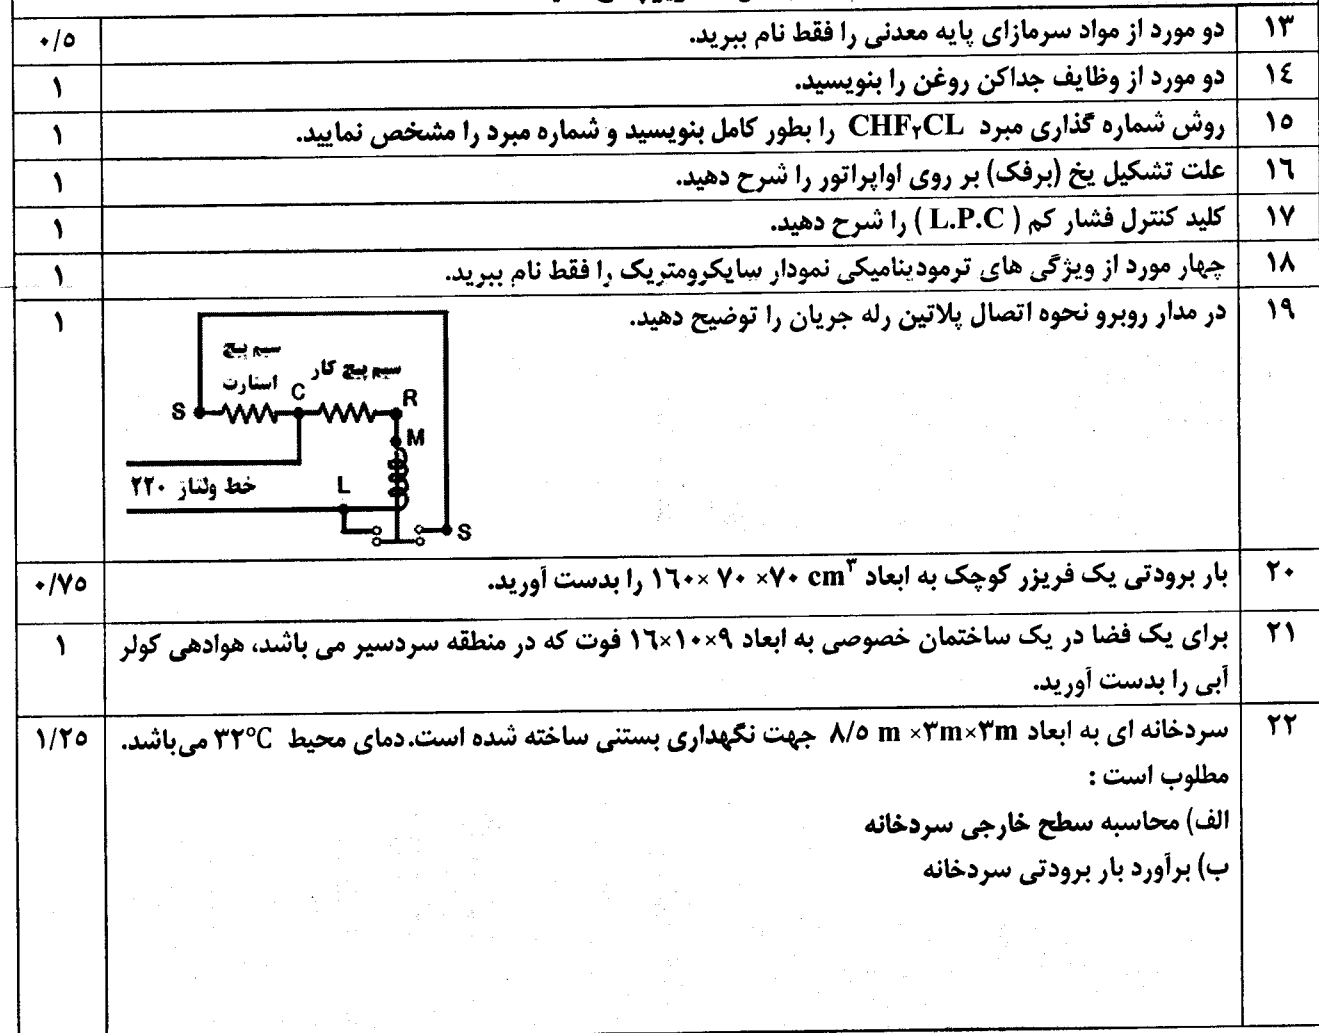 ۱۳ دو مورد از مواد سرمازای پایه معدنی را فقط نام ببرید. ۰/۵
۱٤ دو مورد از وظایف جداکن روغن را بنویسید. ۱
۱۵ روش شماره گذاری مبرد CHF۲CL را بطور کامل بنویسید و شماره مبرد را مشخص نمایید. ۱
۱٦ علت تشکیل یخ (برفک) بر روی اواپراتور را شرح دهید. ۱
۱۷ کلید کنترل فشار کم ( L.P.C ) را شرح دهید. ۱
۱۸ چهار مورد از ویژگی های ترمودینامیکی نمودار سایکرومتریک را فقط نام ببرید. ۱
۱۹ در مدار روبرو نحوه اتصال پلاتین رله جریان را توضیح دهید. ۱
سیم پیچ
استارت
سیم پیچ کار
S
C
R
M
خط ولتاژ ۲۲۰
L
S
۲۰ بار برودتی یک فریزر کوچک به ابعاد ۱٦۰× ۷۰ ×۷۰ cm۳ را بدست آورید. ۰/۷۵
۲۱ برای یک فضا در یک ساختمان خصوصی به ابعاد ۹×۱۰×۱٦ فوت که در منطقه سردسیر می باشد، هوادهی کولر ۱
آبی را بدست آورید.
۲۲ سردخانه ای به ابعاد ۸/۵ m ×۳m×۳m جهت نگهداری بستنی ساخته شده است.دمای محیط ۳۲°C می‌باشد. ۱/۲۵
مطلوب است :
الف) محاسبه سطح خارجی سردخانه
ب) برآورد بار برودتی سردخانه